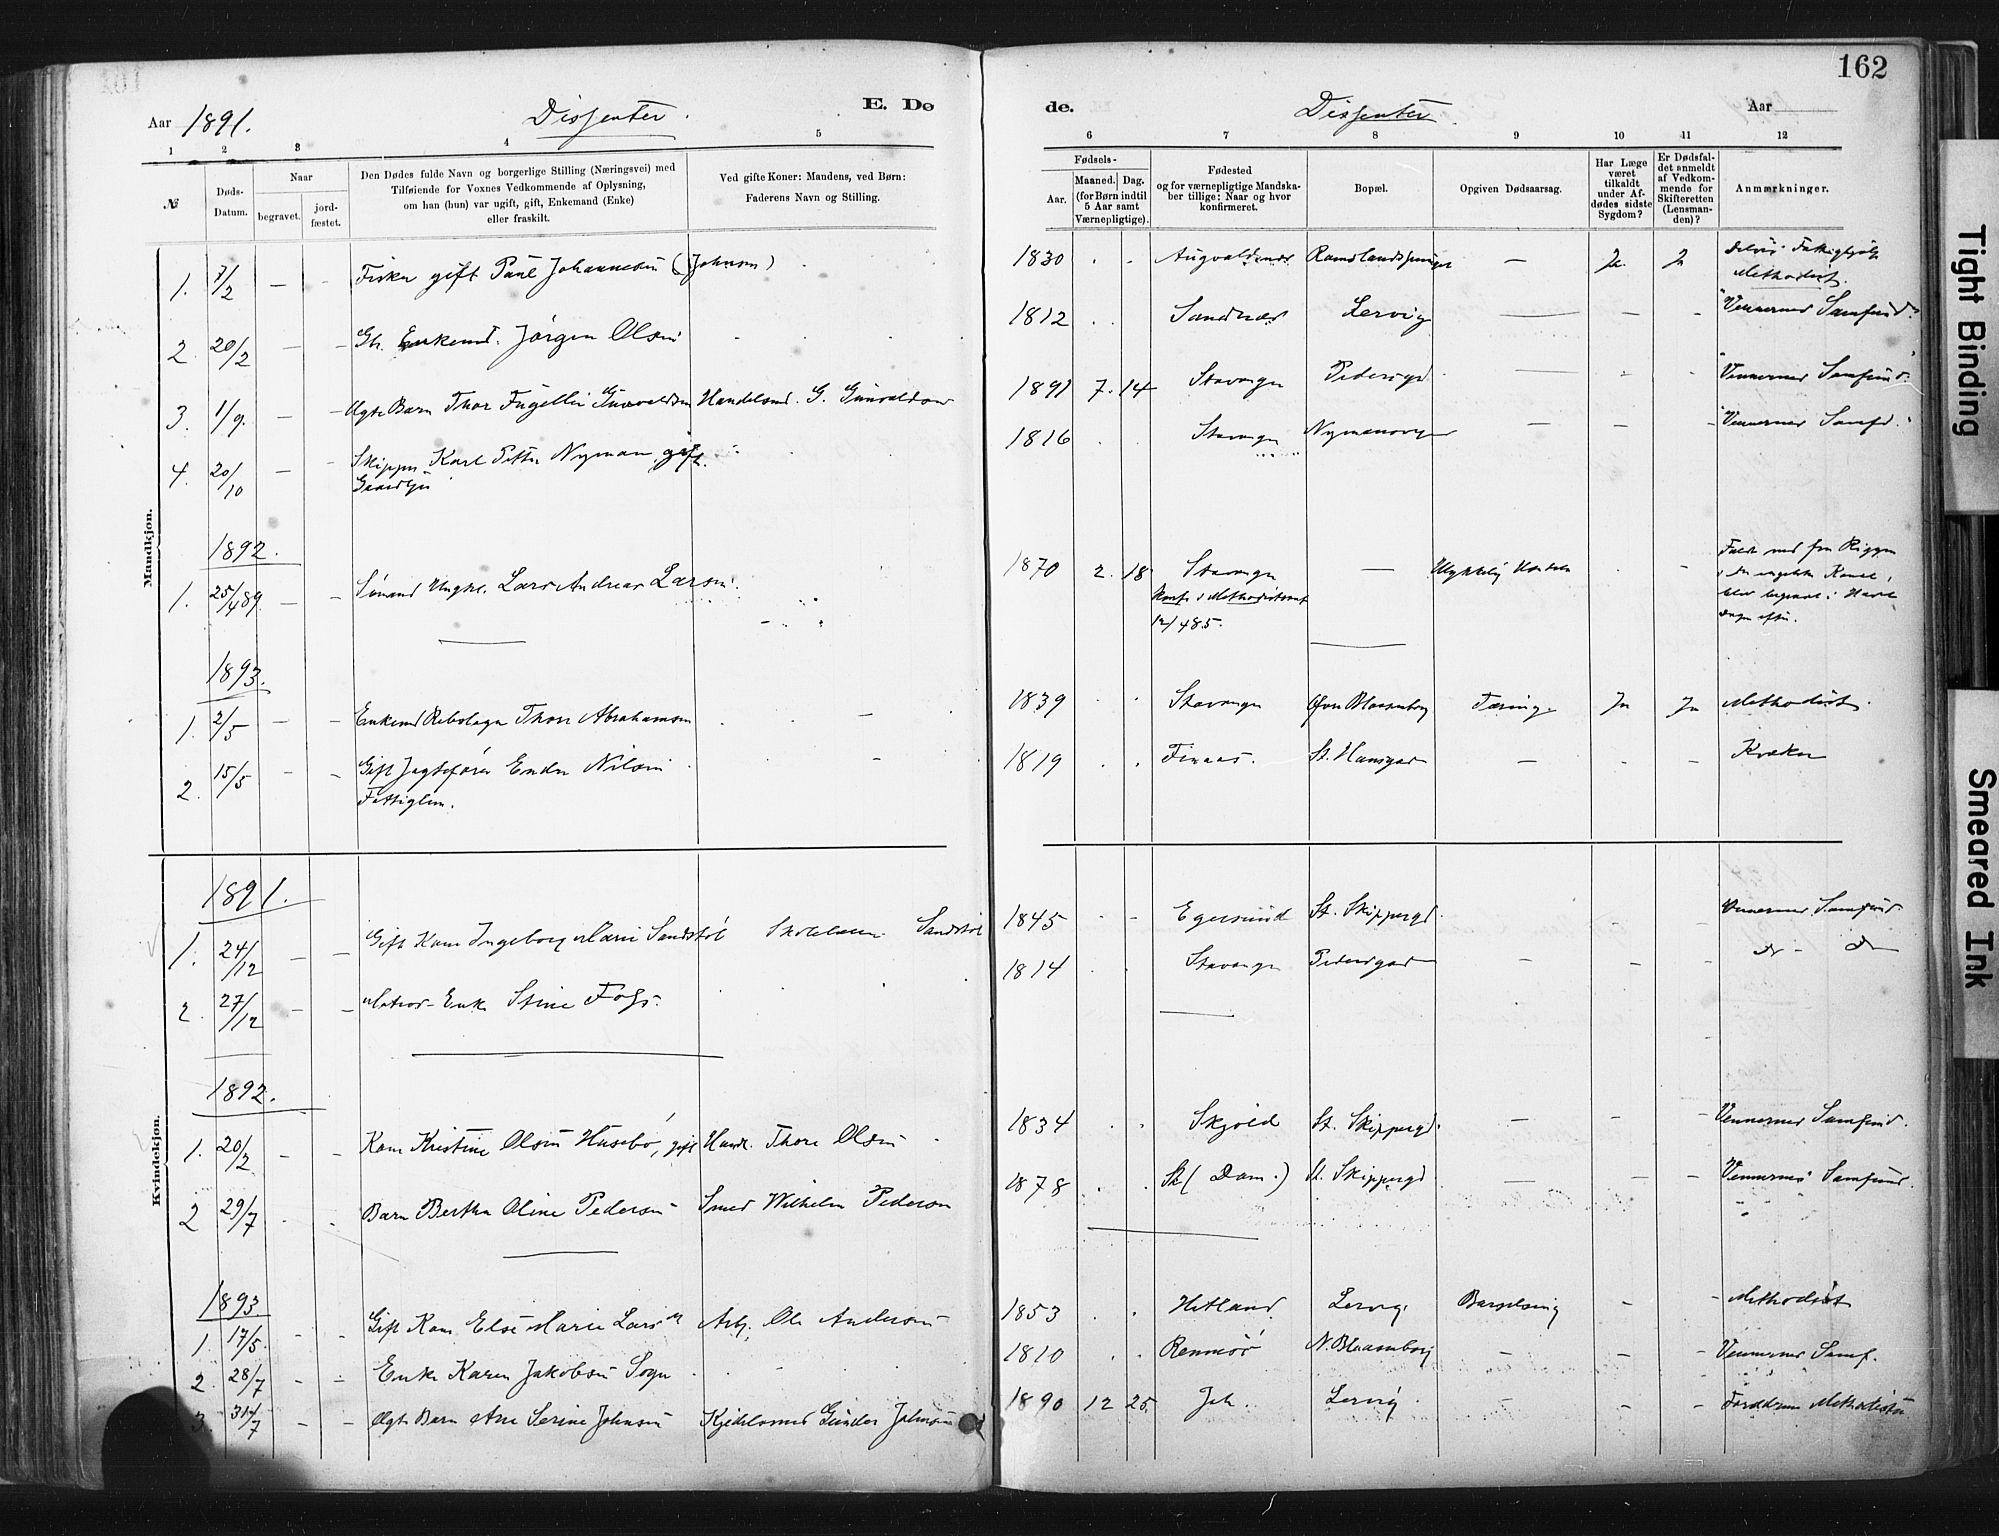 162
Aar 1891.
Dissenter.
E. Dø
de.
Dissenter.
Aar
1 2 3 4 5 6 7 8 9 10 11 12
№
Døds-
Datum.
Naar
begravet.
jord-
fæstet.
Den Dødes fulde Navn og borgerlige Stilling (Næringsvei) med
Tilføiende for Voxnes Vedkommende af Oplysning,
om han (hun) var ugift, gift, Enkemand (Enke)
eller fraskilt.
Ved gifte Koner: Mandens, ved Børn:
Faderens Navn og Stilling.
Fødsels-
Aar.
Maaned. Dag.
(for Børn indtil
5 Aar samt
Værnepligtige).
Fødested
og for værnepligtige Mandska-
ber tillige: Naar og hvor
konfirmeret.
Bopæl.
Opgiven Dødsaarsag.
Har Læge
været
tilkaldt
under Af-
dødes sidste
Sygdom?
Er Dødsfal-
det anmeldt
af Vedkom-
mende for
Skifteretten
(Lensman-
den)?
Anmærkninger.
Mandkjøn.
1. 7/2 – – Fisker gift Paul Johannesen (Johnsen) 1830 Augvaldsnes – Ja. Ja
Methodist.
2. 20/2 – – Enkemd. Jörgen Olsen 1812 Sandnæs Lervig — – – "Vennernes Samfund"
3. 1/9. – – Ægte Barn Thor Fugellie Gunvaldsen Handelsmd. G. Gunvaldsen 1891 7. 14 Stavanger Pedersgd. — "Vennernes Samfund"
4. 20/10 – – Skipper Karl Petter Nyman, gift. 1816 Stavanger – – – "Vennernes Samfd."
1892.
1. 25/4 89. – – Sömand Ungkl. Lars Andreas Larsen. 1870 2. 18 Stavanger — Ulykkelig Hændelse Faldt ned fra Riggen
i den engelske Kanal,
blev begravet i Havet
Konf. i Methodistsamf
12/4 85.
1893.
1. 2/5 – – Enkemd Rebslager Thore Abrahamsen – 1839 Stavanger Øvre Blaasenborg Tæring Ja Ja Methodist.
2. 15/5 – – Gift Jagtefører Endre Nilsen – 1819 Finaas. St. Hansgad – – – Kvæker
Fattiglem.
Kvindekjøn.
1891.
1. 24/12 – – Gift Kone Ingeborg Marie Sandstöl Sandstöl 1845 Egersund St. Skippergd. – – Vennernes Samfund
2. 27/12 – – Enke Stine Fogs. 1814 Stavanger Pedersgad – – – do – do
1892.
1. 20/2 – – Kone Kristine Olsen Husebö, gift Handl. Thore Olsen 1834 Skjold St. Skippergd. – – – Vennernes Samfund.
2 29/7 Barn Bertha Oline Pedersen Smed Wilhelm Pedersen 1878 St (Dom.) St. Skippergd — – – Vennernes Samfund.
1893
1. 17/5. – – Gift Kone Else Marie Lars Arb. Ole Andersen 1853 Hetland Lervig Barselseng – – Methodist
2. 28/7 – – Enke Karen Jakobsen Sogn 1810 Rennesö N. Blaasenborg – – – Vennernes Samf.
3. 31/7 – – Ægte Barn Ane Serine Johnsen Kjedelsmed Gunder Johnsen 1890 12 25. Joh. Lervig – – – Forældrene Methodister
Tight Binding
Smeared Ink